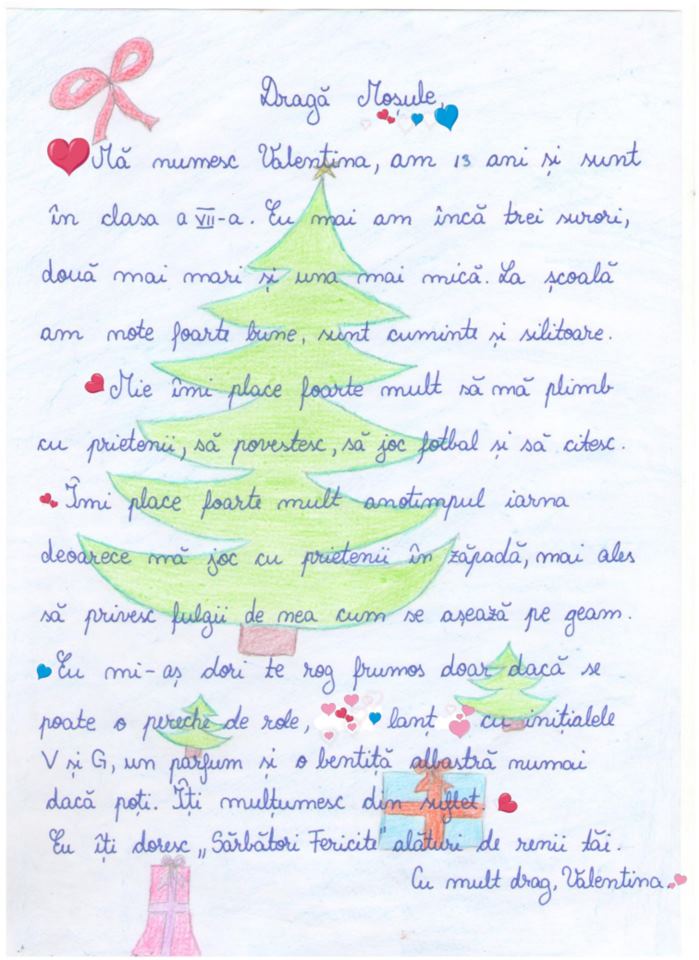 Dragă Moșule,
Mă numesc Valentina, am 13 ani și sunt
în clasa a VII-a. Eu mai am încă trei surori,
două mai mari și una mai mică. La școală
am note foarte bune, sunt cuminte și silitoare.
Mie îmi place foarte mult să mă plimb
cu prietenii, să povestesc, să joc fotbal și să citesc.
Îmi place foarte mult anotimpul iarna
deoarece mă joc cu prietenii în zăpadă, mai ales
să privesc fulgii de nea cum se așează pe geam.
Eu mi-aș dori te rog frumos doar dacă se
poate o pereche de role, lanț cu inițialele
V și G, un parfum și o bentiță albastră numai
dacă poți. Îți mulțumesc din suflet.
Eu îți doresc „Sărbători Fericite" alături de renii tăi.
Cu mult drag, Valentina.